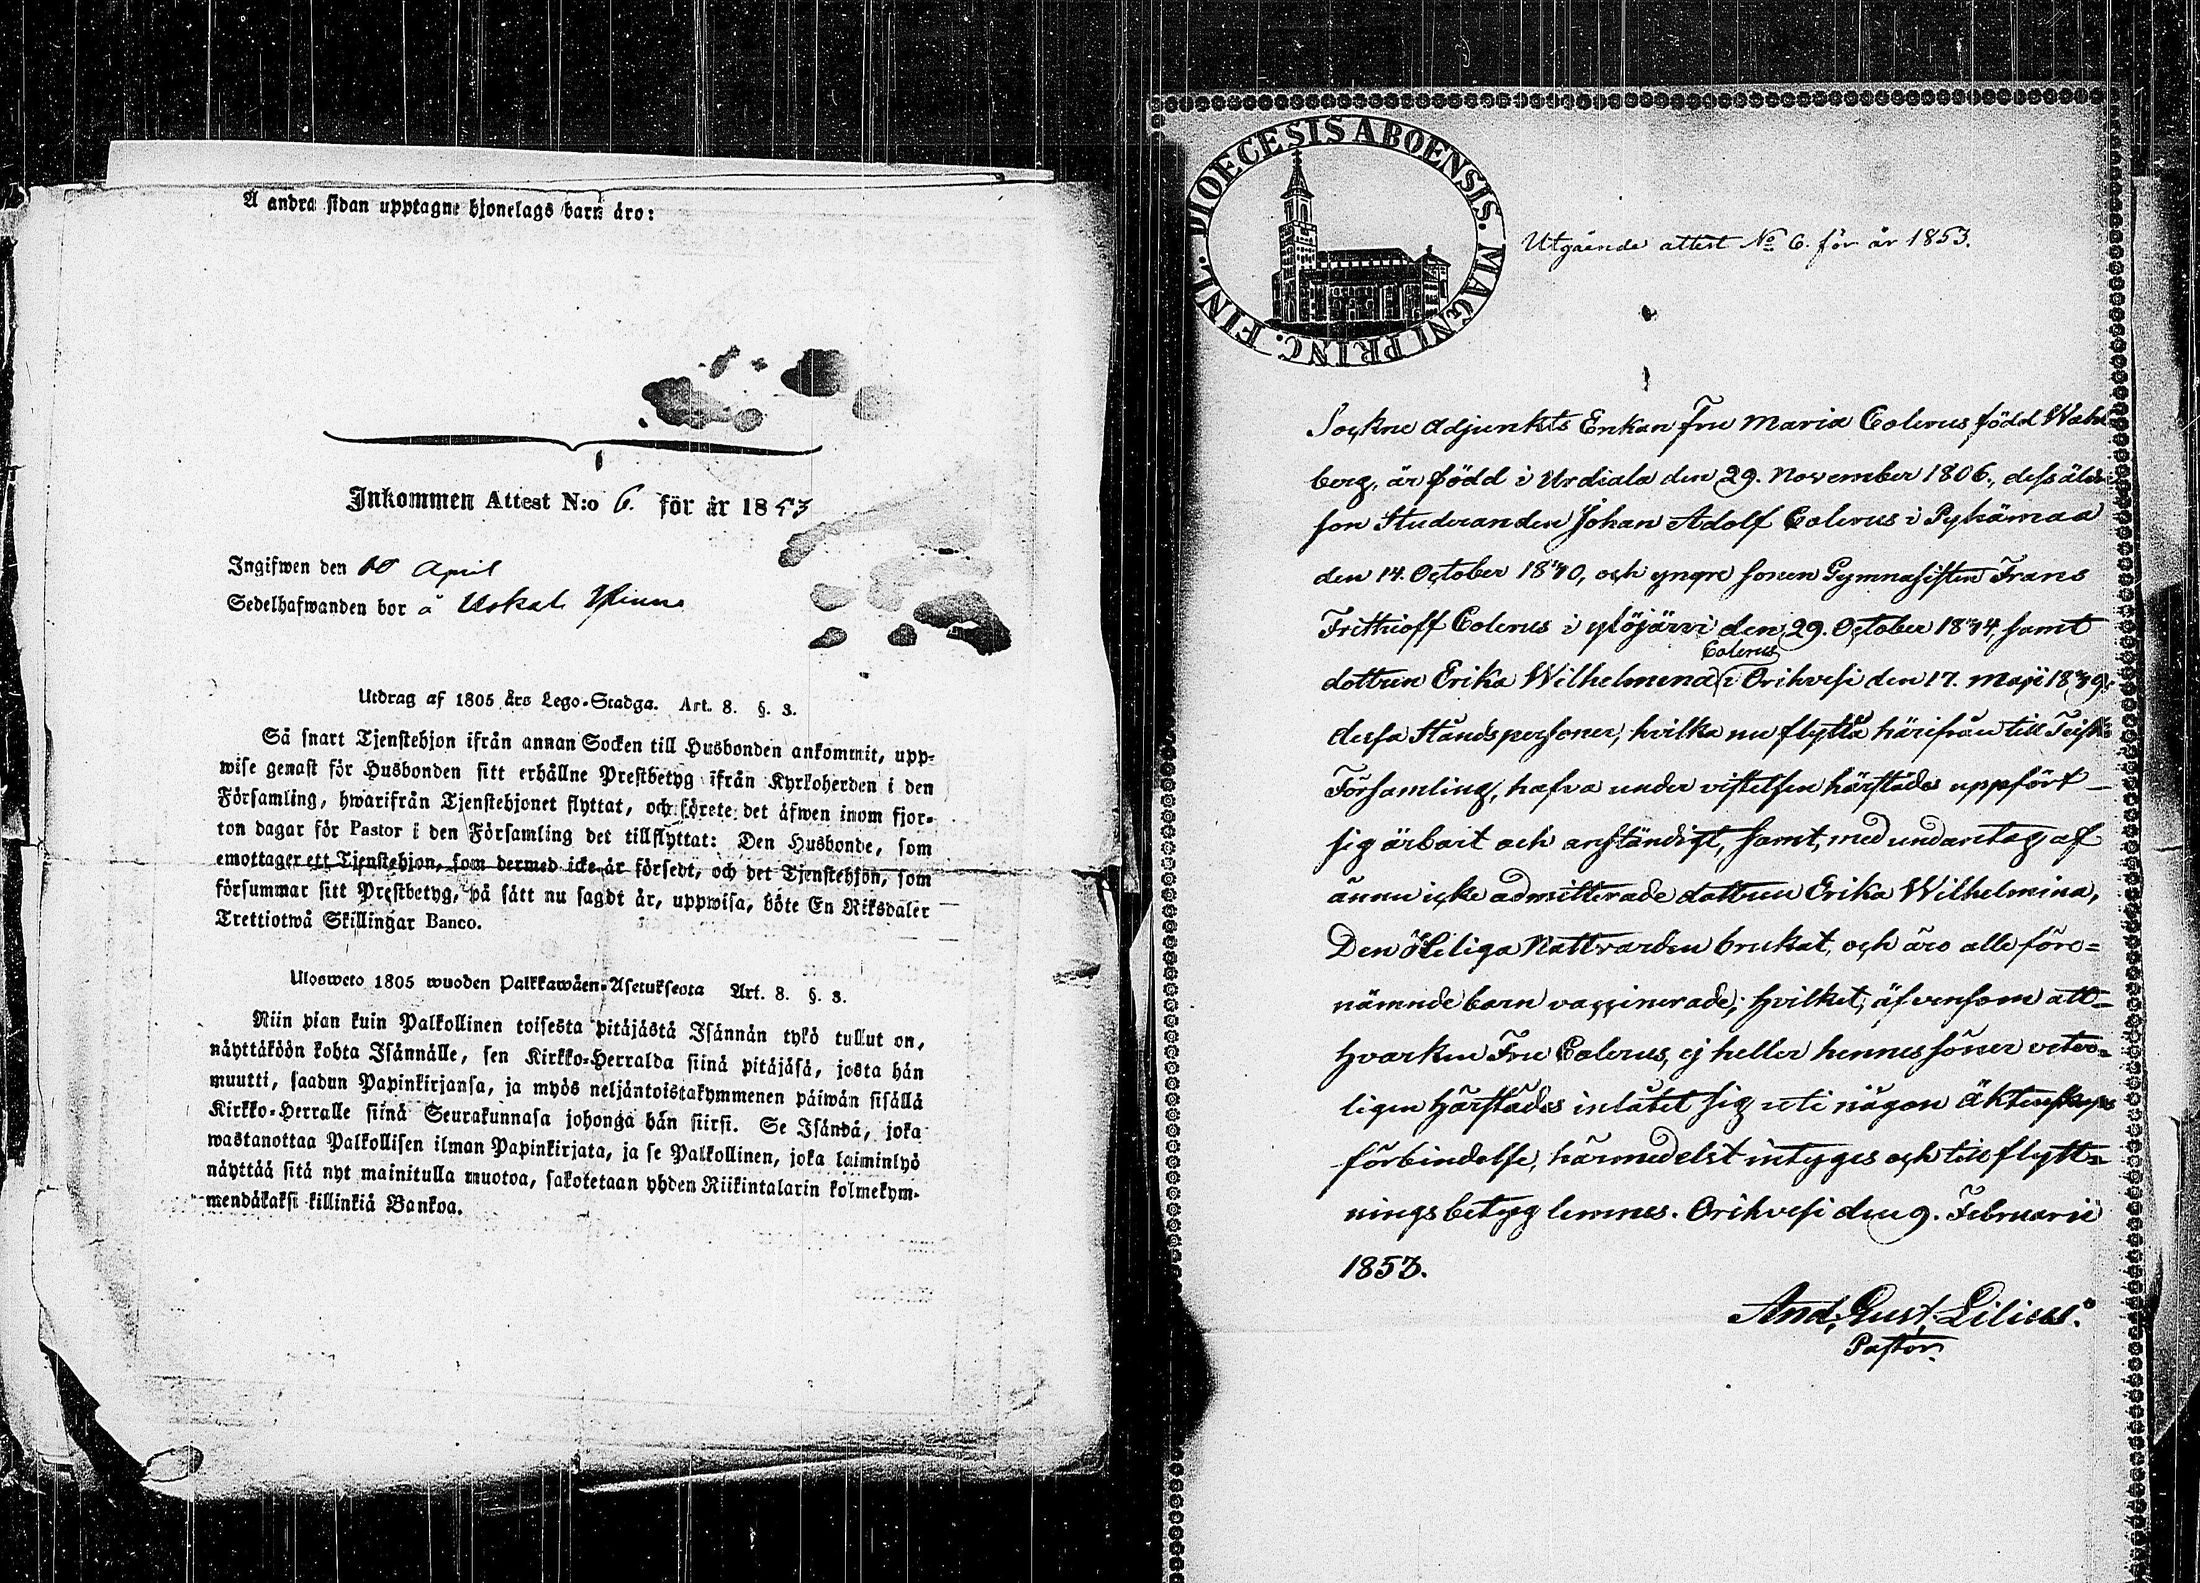 Å andra sidan upptagne hjonelags barn äro:
Inkommen Attest N:o 6. för år 1853
Ingifwen den 10 April
Sedelhafwanden bor å
Utdrag af 1805 års Lego-Stadga. Art. 8. §. 3.
Så snart Tjenstehjon ifrån annan Socken till Husbonden ankommit, upp-
wise genast för Husbonden sitt erhållne Prestbetyg ifrån Kyrkoherden i den
Församling, hwarifrån Tjenstehjonet flyttat, och förete det äfwen inom fjor-
ton dagar för Pastor i den Församling det tillflyttat: Den Husbonde, som
emottager ett Tjenstehjon, som dermed icke är försedt, och det Tjenstehjon, som
försummar sitt Prestbetyg, på sätt nu sagdt är, uppwisa, böte En Riksdaler
Trettiotwå Skillingar Banco.
Ulosweto 1805 wuoden Palkkawäen-Asetuksesta Art. 8. §. 3.
Niin pian kuin Palkollinen toisesta pitäjästä Isännän tykö tullut on,
näyttäköön kohta Isännälle, sen Kirkko-Herralda siinä pitäjäsä, josta hän
muutti, saadun Papinkirjansa, ja myös neljäntoistakymmenen päiwän sisällä
Kirkko-Herralle siinä Seurakunnasa johonga hän siirsi. Se Isändä, joka
wastanottaa Palkollisen ilman Papinkirjata, ja se Palkollinen, joka laiminlyö
näyttää sitä nyt mainitulla muotoa, sakotetaan yhden Riikintalarin kolmekym-
mendäkaksi killinkiä Bankoa.
DIOECESIS ABOENSIS. MAGNI PRINC. FINL.
Utgående attest No 6. för år 1853.
Sockne Adjunkts Enkan Fru Maria Colerus född Wahl
berg, är född i Urdiala den 29. November 1806., dess äldre
son Studeranden Johan Adolf Colerus i Pyhämaa
den 14. October 1830, och yngre sonen Gymnasisten Frans
Frithioff Colerus i Ylöjärvi den 29. October 1834, samt
Colerus
dottren Erika Wilhelmina i Orihvesi den 17. Maji 1839;
dessa Ståndspersoner, hvilka nu flytta härifrån till
Församling, hafva under vistelsen härstädes uppfört
sig ärbart och anständigt, samt, med undantag af
ännu icke admitterade dottren Erika Wilhelmina,
Den Heliga Nattvarden brukat, och äro alle före=
nämnde barn vaccinerade; hvilket, äfvensom att
hvarken Fru Colerus, ej heller hennes söner veter=
ligen härstädes inlåtit sig uti någon äktenskaps
förbindelse, härmedelst intyges och till flytt=
ningsbetyg lemnes. Orihvesi den 9. Februarii
1853.
And. Gust. Lilius.
Pastor.